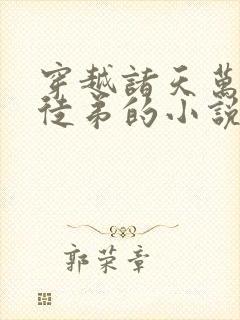 穿越諸天萬
徒弟的小說
郭荣章